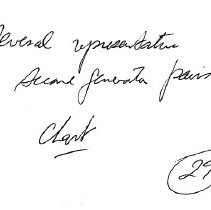 several representative
second generation pairs
Chart
29